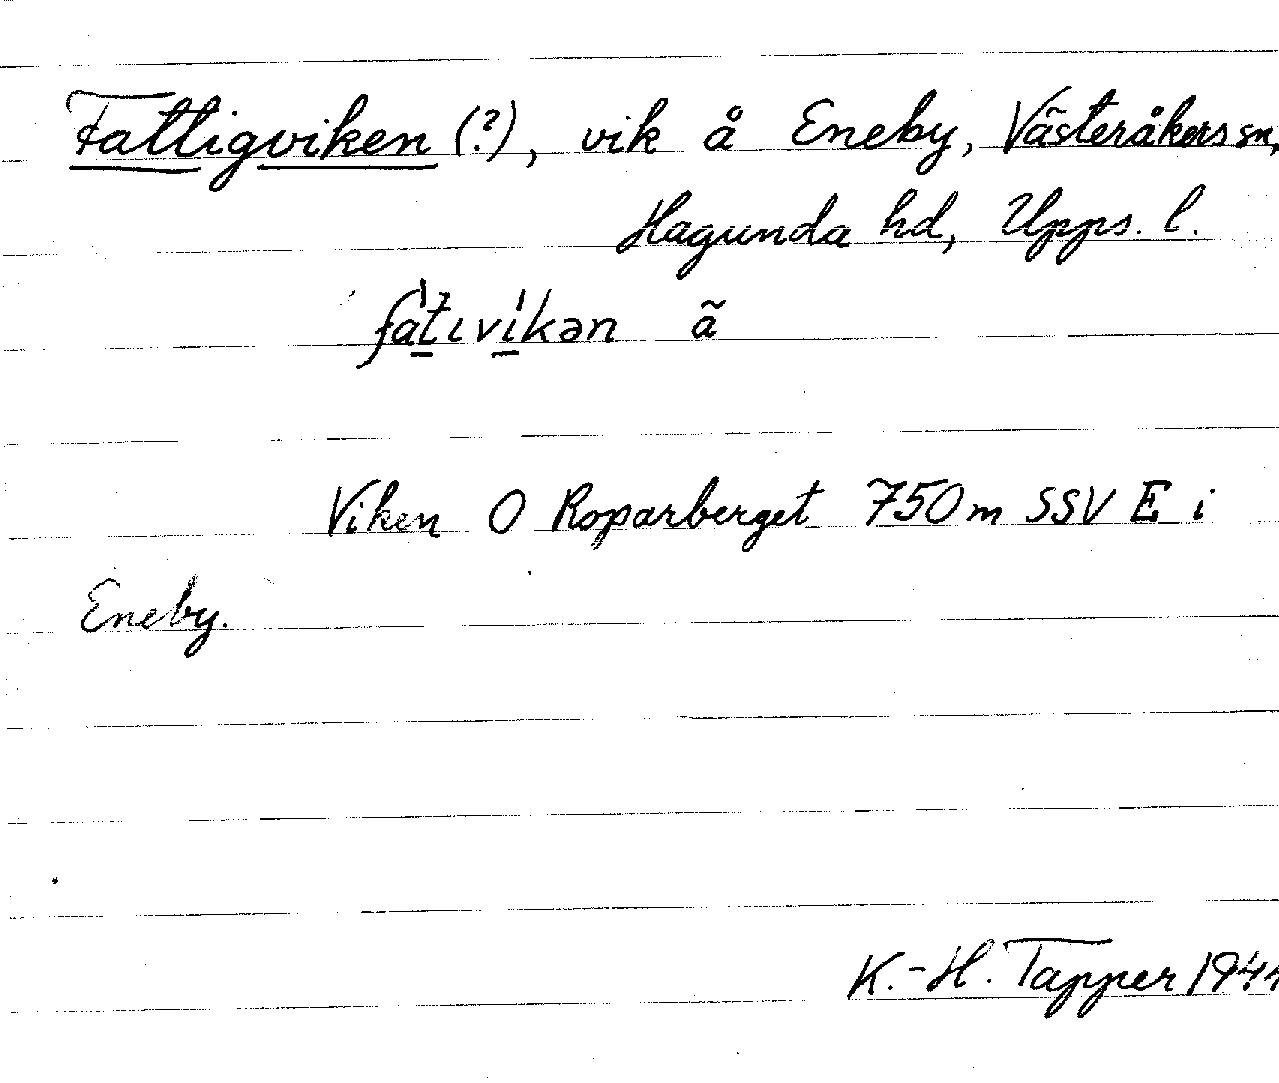 Fattigviken (?), vik å Eneby, Västeråkers sn,
Hagunda hd, Upps. l.
fa̠tıvi̠kən ã
Viken O Roparberget 750 m SSV E i
Eneby.
K.-H. Tapper